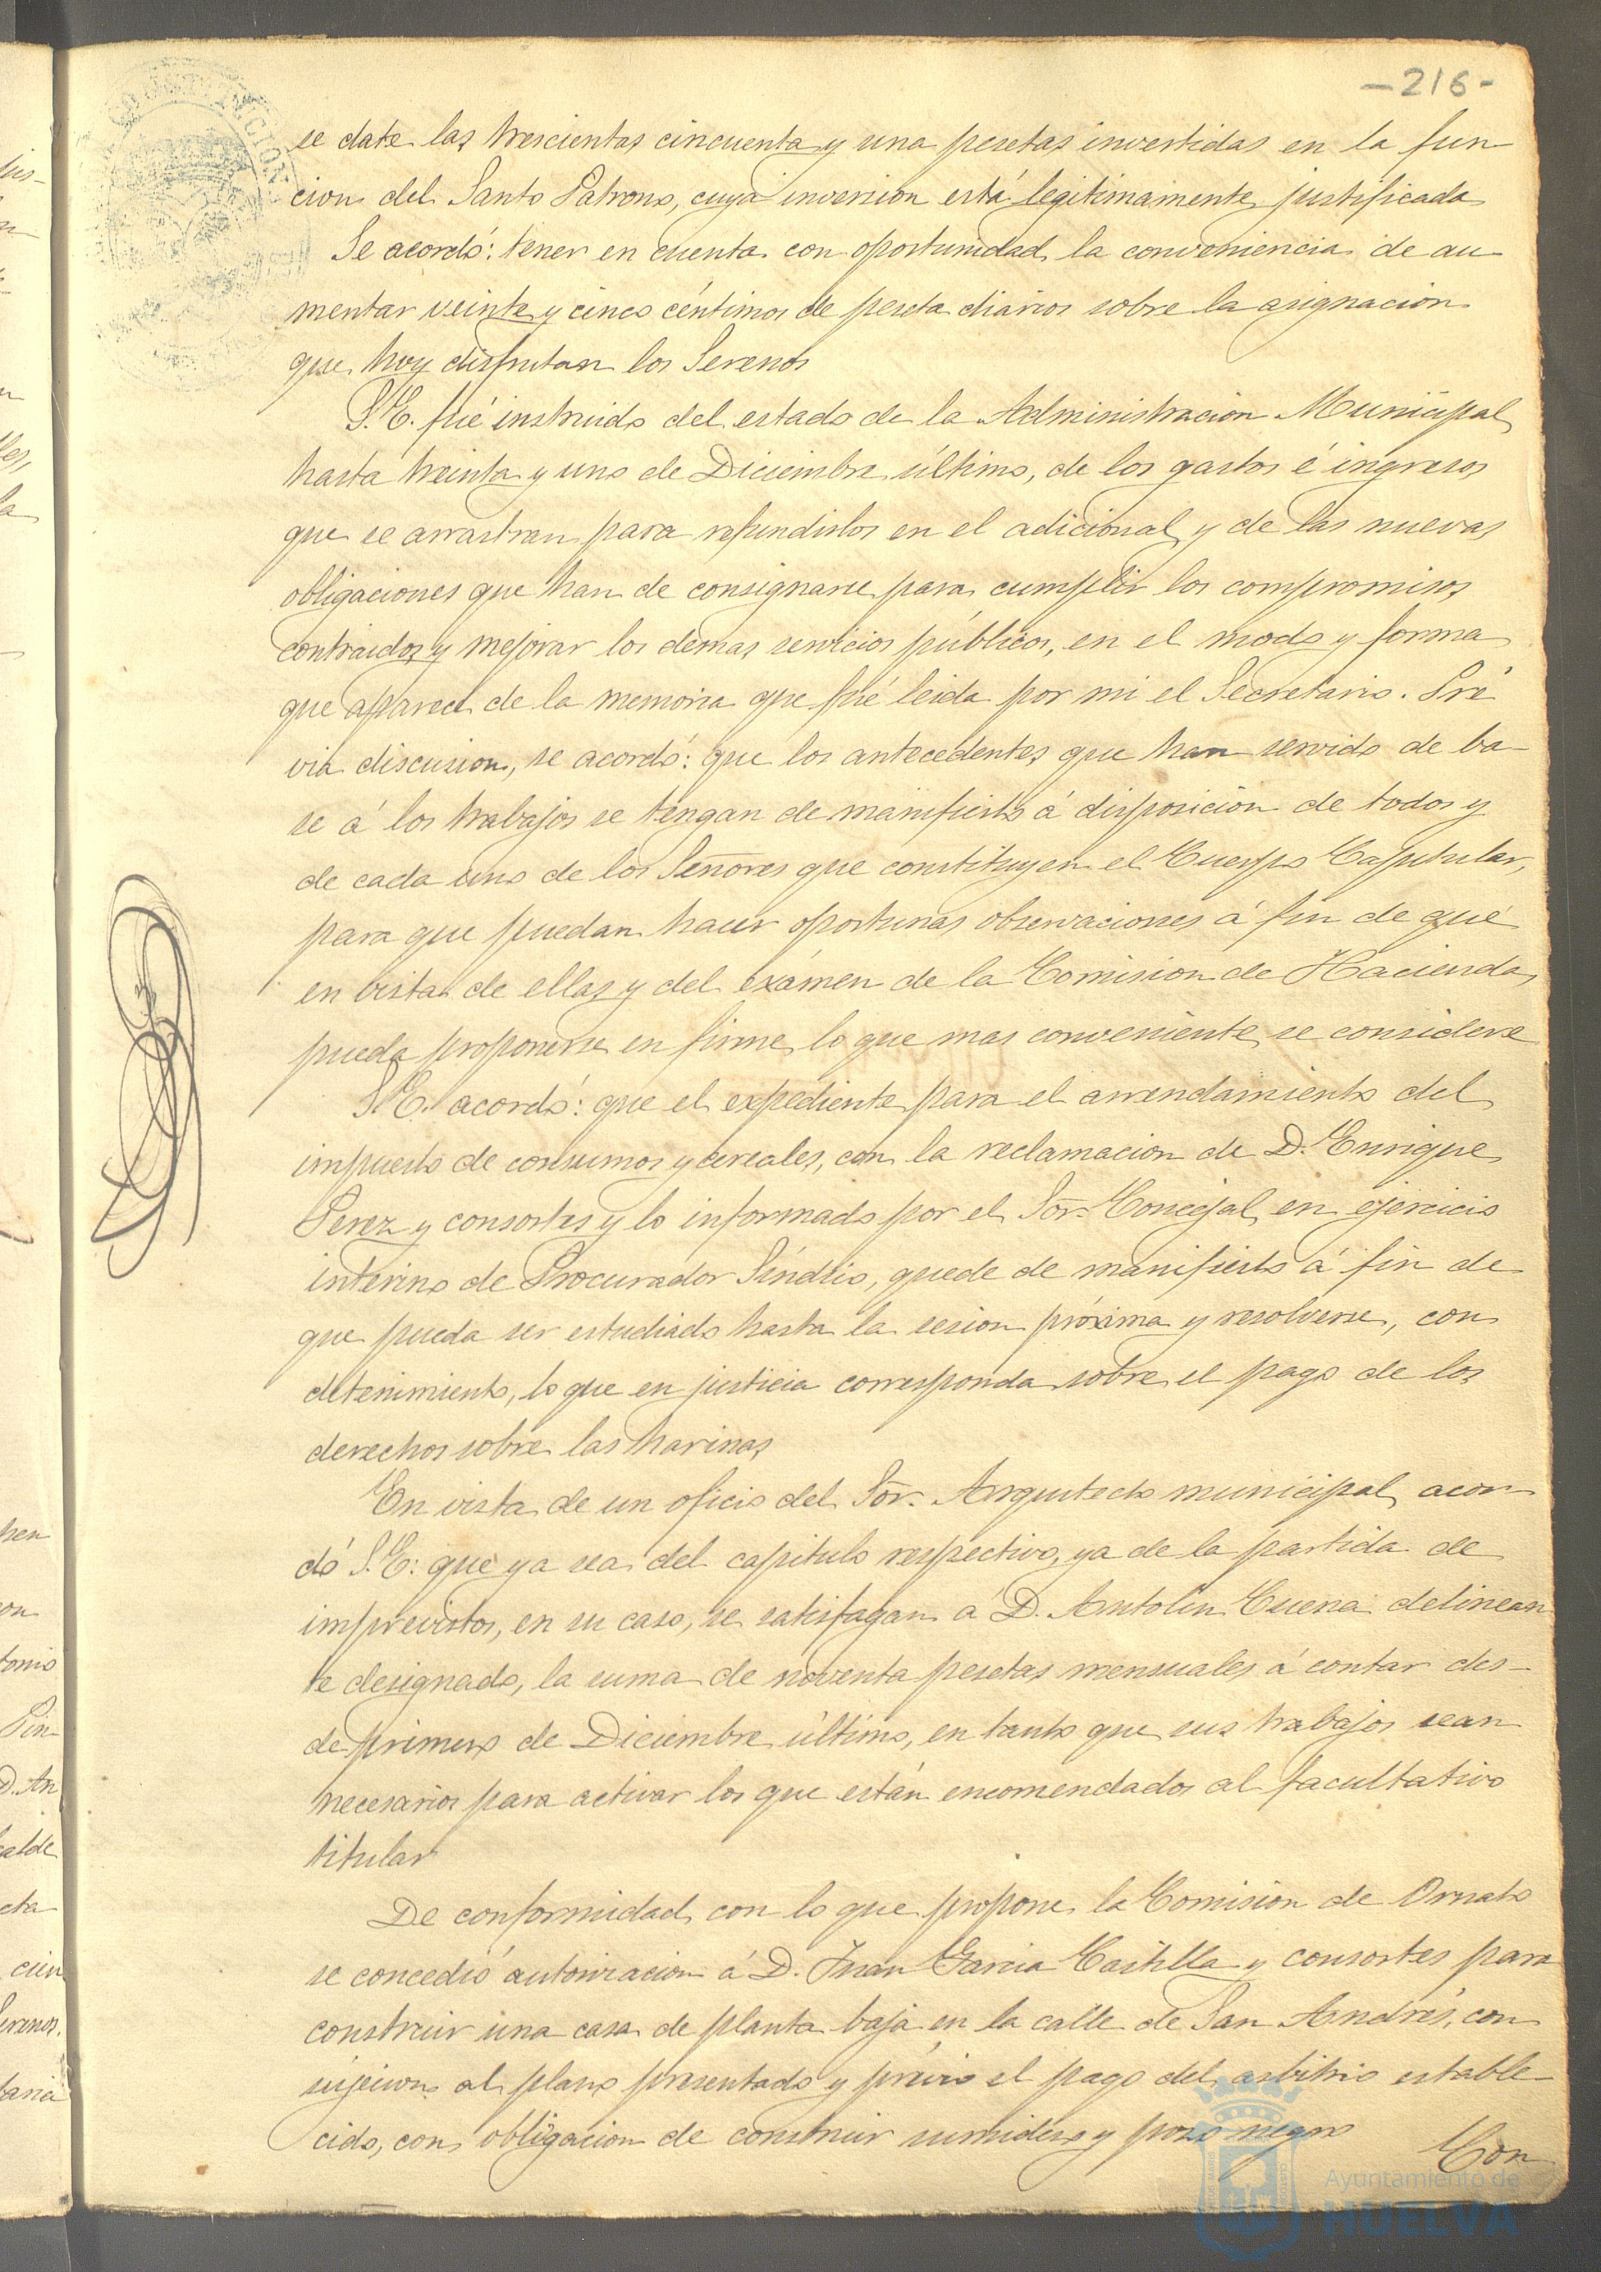 -216-
se date las trescientas cincuenta y una pesetas invertidas en la fun-
cion del Santo Patrono, cuya inversion está legitimamente justificada
Se acordó: tener en cuenta con oportunidad la conveniencia de au-
mentar veinte y cinco céntimos de peseta diarios sobre la asignacion
que hoy disfrutan los Serenos
S.E. fué instruido del estado de la Administracion Municipal
hasta treinta y uno de Diciembre último, de los gastos é ingresos
que se arrastran para refundirlos en el adicional y de las nuevas
obligaciones que han de consignarse para cumplir los compromisos
contraidos y mejorar los demas servicios públicos, en el modo y forma
que aparece de la memoria que fué leida por mi el Secretario. Pré
via discusion, se acordó: que los antecedentes que han servido de ba-
se á los trabajos se tengan de manifiesto á disposicion de todos y
de cada uno de los Señores que constituyen el Cuerpo Capitular,
para que puedan hacer oportunas observaciones á fin de que
en vista de ellas y del exámen de la Comision de Hacienda,
pueda proponerse en firme lo que mas conveniente se considere
S.E. acordó: que el expediente para el arrendamiento del
impuesto de consumos y cereales, con la reclamacion de D. Enrique
Perez y consortes y lo informado por el Sor. Concejal en ejercicio
interino de Procurador Síndico, quede de manifiesto á fin de
que pueda ser estudiado hasta la sesion próxima y resolverse, con
detenimiento, lo que en justicia corresponda sobre el pago de los
derechos sobre las harinas
En vista de un oficio del Sor. Arquitecto municipal, acor-
dó S.E: que ya sea del capitulo respectivo, ya de la partida de
imprevistos, en su caso, se satisfagan á D. Antolin Cuena delinean
te designado, la suma de noventa pesetas mensuales á contar des-
de primero de Diciembre último, en tanto que sus trabajos sean
necesarios para activar los que están encomendados al facultativo
titular
De conformidad con lo que propone la Comision de Ornato
se concedió autorizacion á D. Juan Garcia Castilla y consortes para
construir una casa de planta baja en la calle de San Andrés, con
sujecion al plano presentado y prévio el pago del arbitrio estable-
cido, con obligacion de construir sumidero y pozo negro
Con
Ayuntamiento de
HUELVA